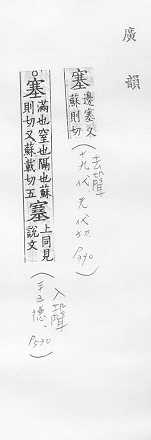 廣韻
塞 邊塞又
蘇則切
(去聲
十九代 先代切 P390)
塞 滿也窒也隔也蘇
則切又蘇載切五
𡫳 上同見
說文
(入聲
二十五德 P530)